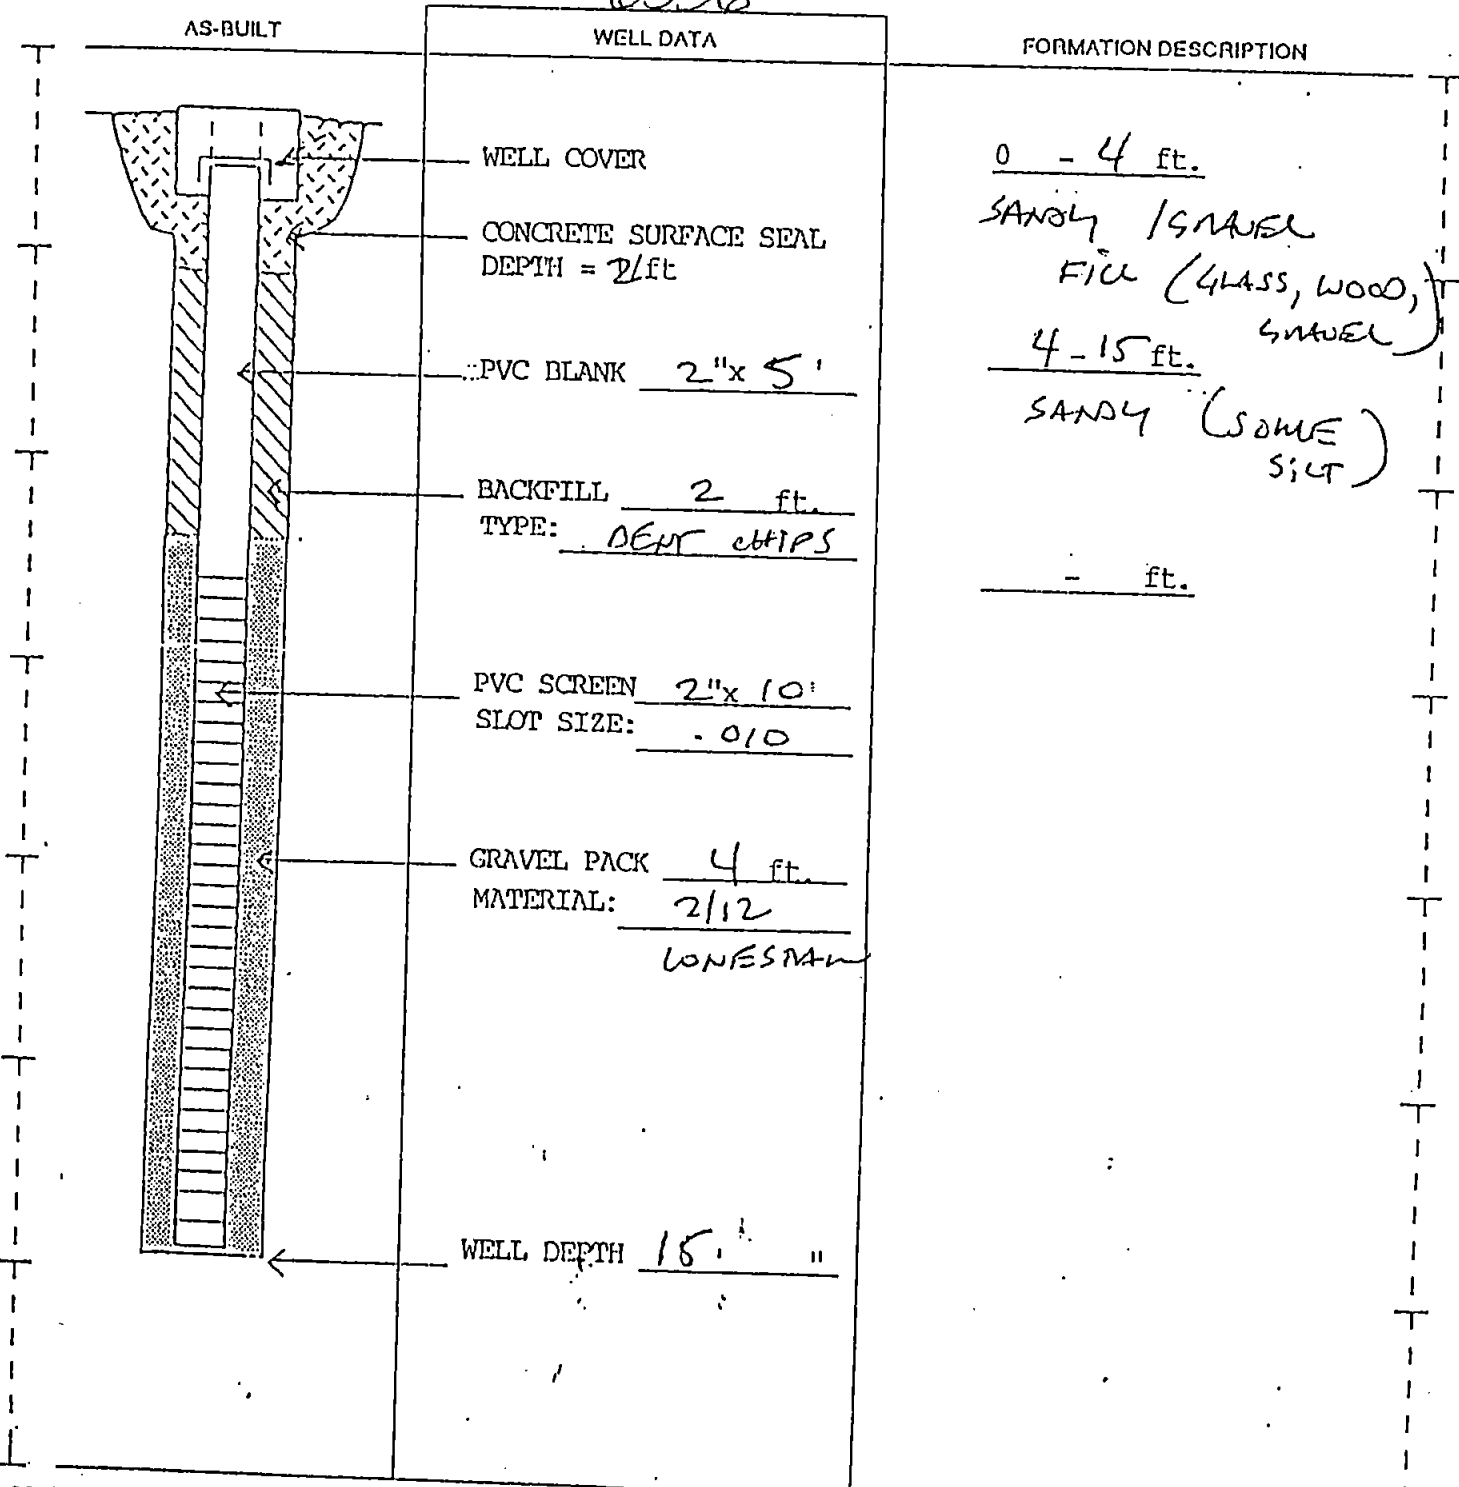 AS-BUILT
WELL DATA
FORMATION DESCRIPTION
WELL COVER
CONCRETE SURFACE SEAL
DEPTH = /ft
PVC BLANK 2"x 5'
BACKFILL 2 ft.
TYPE: CHIPS
PVC SCREEN 2"x 10'
SLOT SIZE: .010
GRAVEL PACK 4 ft.
MATERIAL: 2/12
LONESTAR
WELL DEPTH 15' "
0 - 4 ft.
SANDY / GRAVEL
FILL (GLASS, WOOD,
GRAVEL)
4-15 ft.
SANDY (SOME
SILT)
- ft.